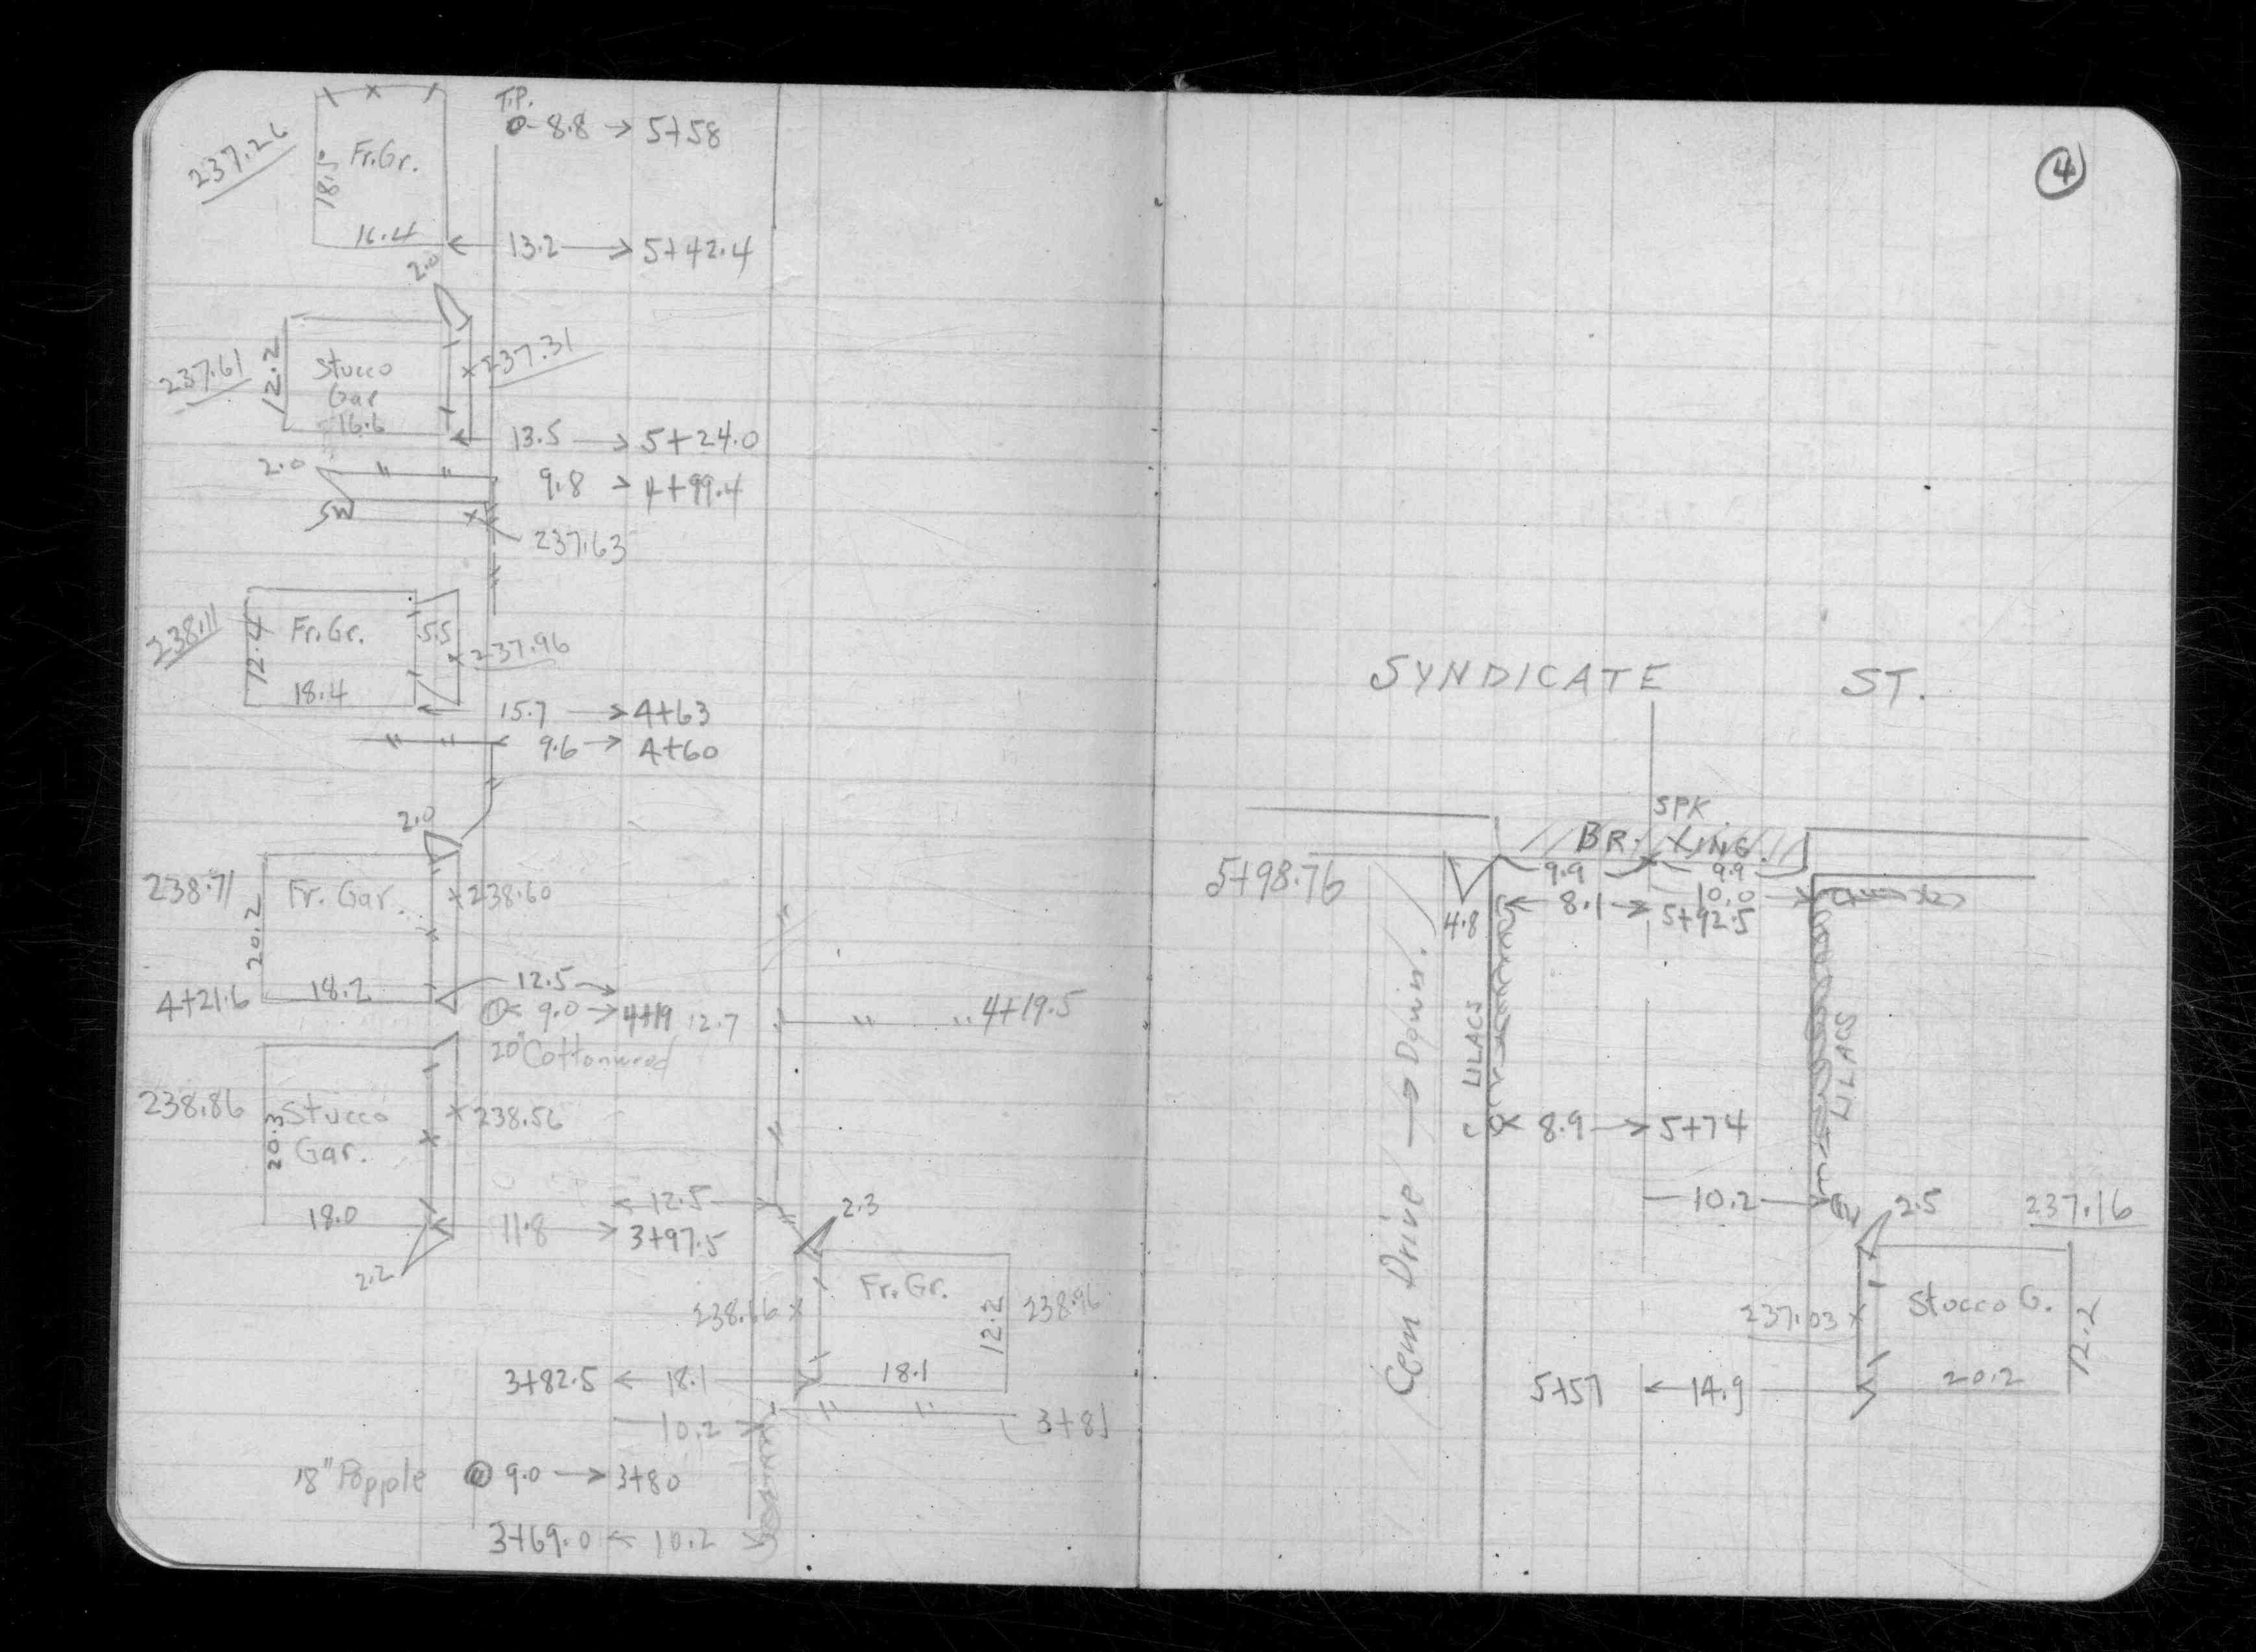 T.P.
8.8 → 5+58
237.26
18.5
Fr.Gr.
16.4
13.2 → 5+42.4
2.0
237.61
12.2
Stucco
Gar
16.6
237.31
13.5 → 5+24.0
2.0
9.8 → 4+99.4
SW
237.63
238.11
12.4
Fr.Gr.
5.5
18.4
237.96
15.7 → 4+63
9.6 → 4+60
2.0
238.71
20.2
Fr. Gar.
238.60
4+21.6
18.2
12.5
9.0 → 4+19
12.7
4+19.5
20" Cottonwood
238.86
20.3
Stucco
Gar.
238.56
18.0
← 12.5
11.8 → 3+97.5
2.2
2.3
Fr.Gr.
12.2
238.96
3+82.5 ← 18.1
18.1
10.2
3+81
18" Popple
9.0 → 3+80
3+69.0 ← 10.2
4
SYNDICATE ST.
SPK.
BR. XING.
5+98.76
9.9
9.9
10.0 →
4.8
← 8.1 → 5+92.5
LILACS
LILACS
Cem Drive → Down.
8.9 → 5+74
10.2
2.5
237.16
Stucco G.
237.03
12.2
5+57 ← 14.9
20.2